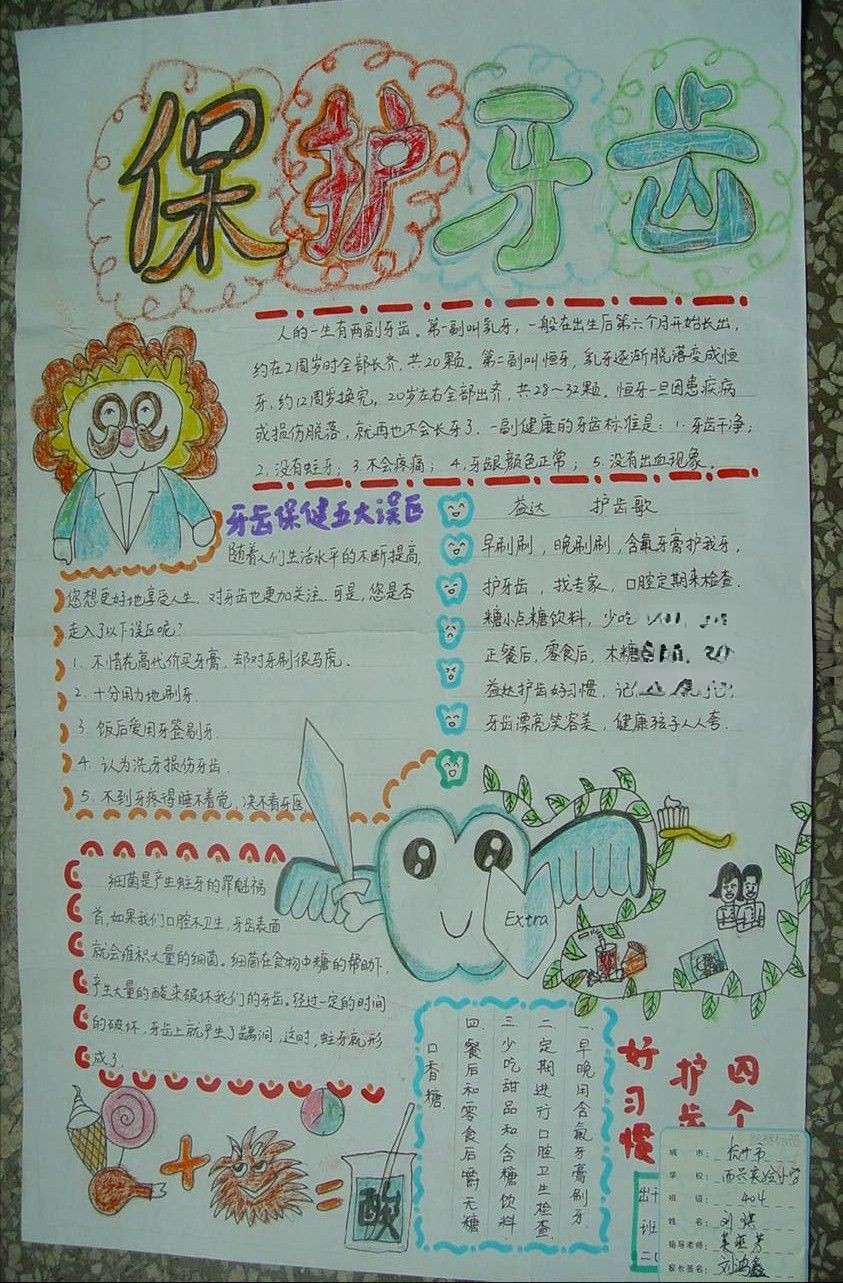 保护牙齿
人的一生有两副牙齿。第一副叫乳牙，一般在出生后第六个月开始长出，
约在2周岁时全部长齐，共20颗。第二副叫恒牙，乳牙逐渐脱落变成恒
牙，约12周岁换完，20岁左右全部出齐，共28～32颗。恒牙一旦因患疾病
或损伤脱落，就再也不会长牙了。一副健康的牙齿标准是：1.牙齿干净；
2.没有蛀牙；3.不会疼痛；4.牙龈颜色正常；5.没有出血现象。
牙齿保健五大误区
随着人们生活水平的不断提高，
您想更好地享受人生．对牙齿也更加关注．可是，您是否
走入了以下误区呢？
1．不惜花高代价买牙膏，却对牙刷很马虎．
2．十分用力地刷牙．
3．饭后爱用牙签剔牙．
4．认为洗牙损伤牙齿．
5．不到牙疼得睡不着觉，决不看牙医
益达 护齿歌
早刷刷，晚刷刷，含氟牙膏护我牙，
护牙齿，找专家，口腔定期来检查．
糖小点糖饮料，少吃
正餐后，零食后，木糖
益达护齿好习惯，记
牙齿漂亮笑容美，健康孩子人人夸．
细菌是产生蛀牙的罪魁祸
首，如果我们口腔不卫生，牙齿表面
就会堆积大量的细菌。细菌在食物中糖的帮助下，
产生大量的酸来破坏我们的牙齿。经过一定的时间
的破坏，牙齿上就产生了龋洞，这时，蛀牙就形
成了．
Extra
四个
护齿
好习惯
一.早晚用含氟牙膏刷牙．
二.定期进行口腔卫生检查．
三.少吃甜品和含糖饮料
四.餐后和零食后嚼无糖
口香糖．
+
=
酸
城市：杭州市
学校：西兴实验小学
班级：404
姓名：刘琪
指导老师：
家长签名：刘鸿鑫